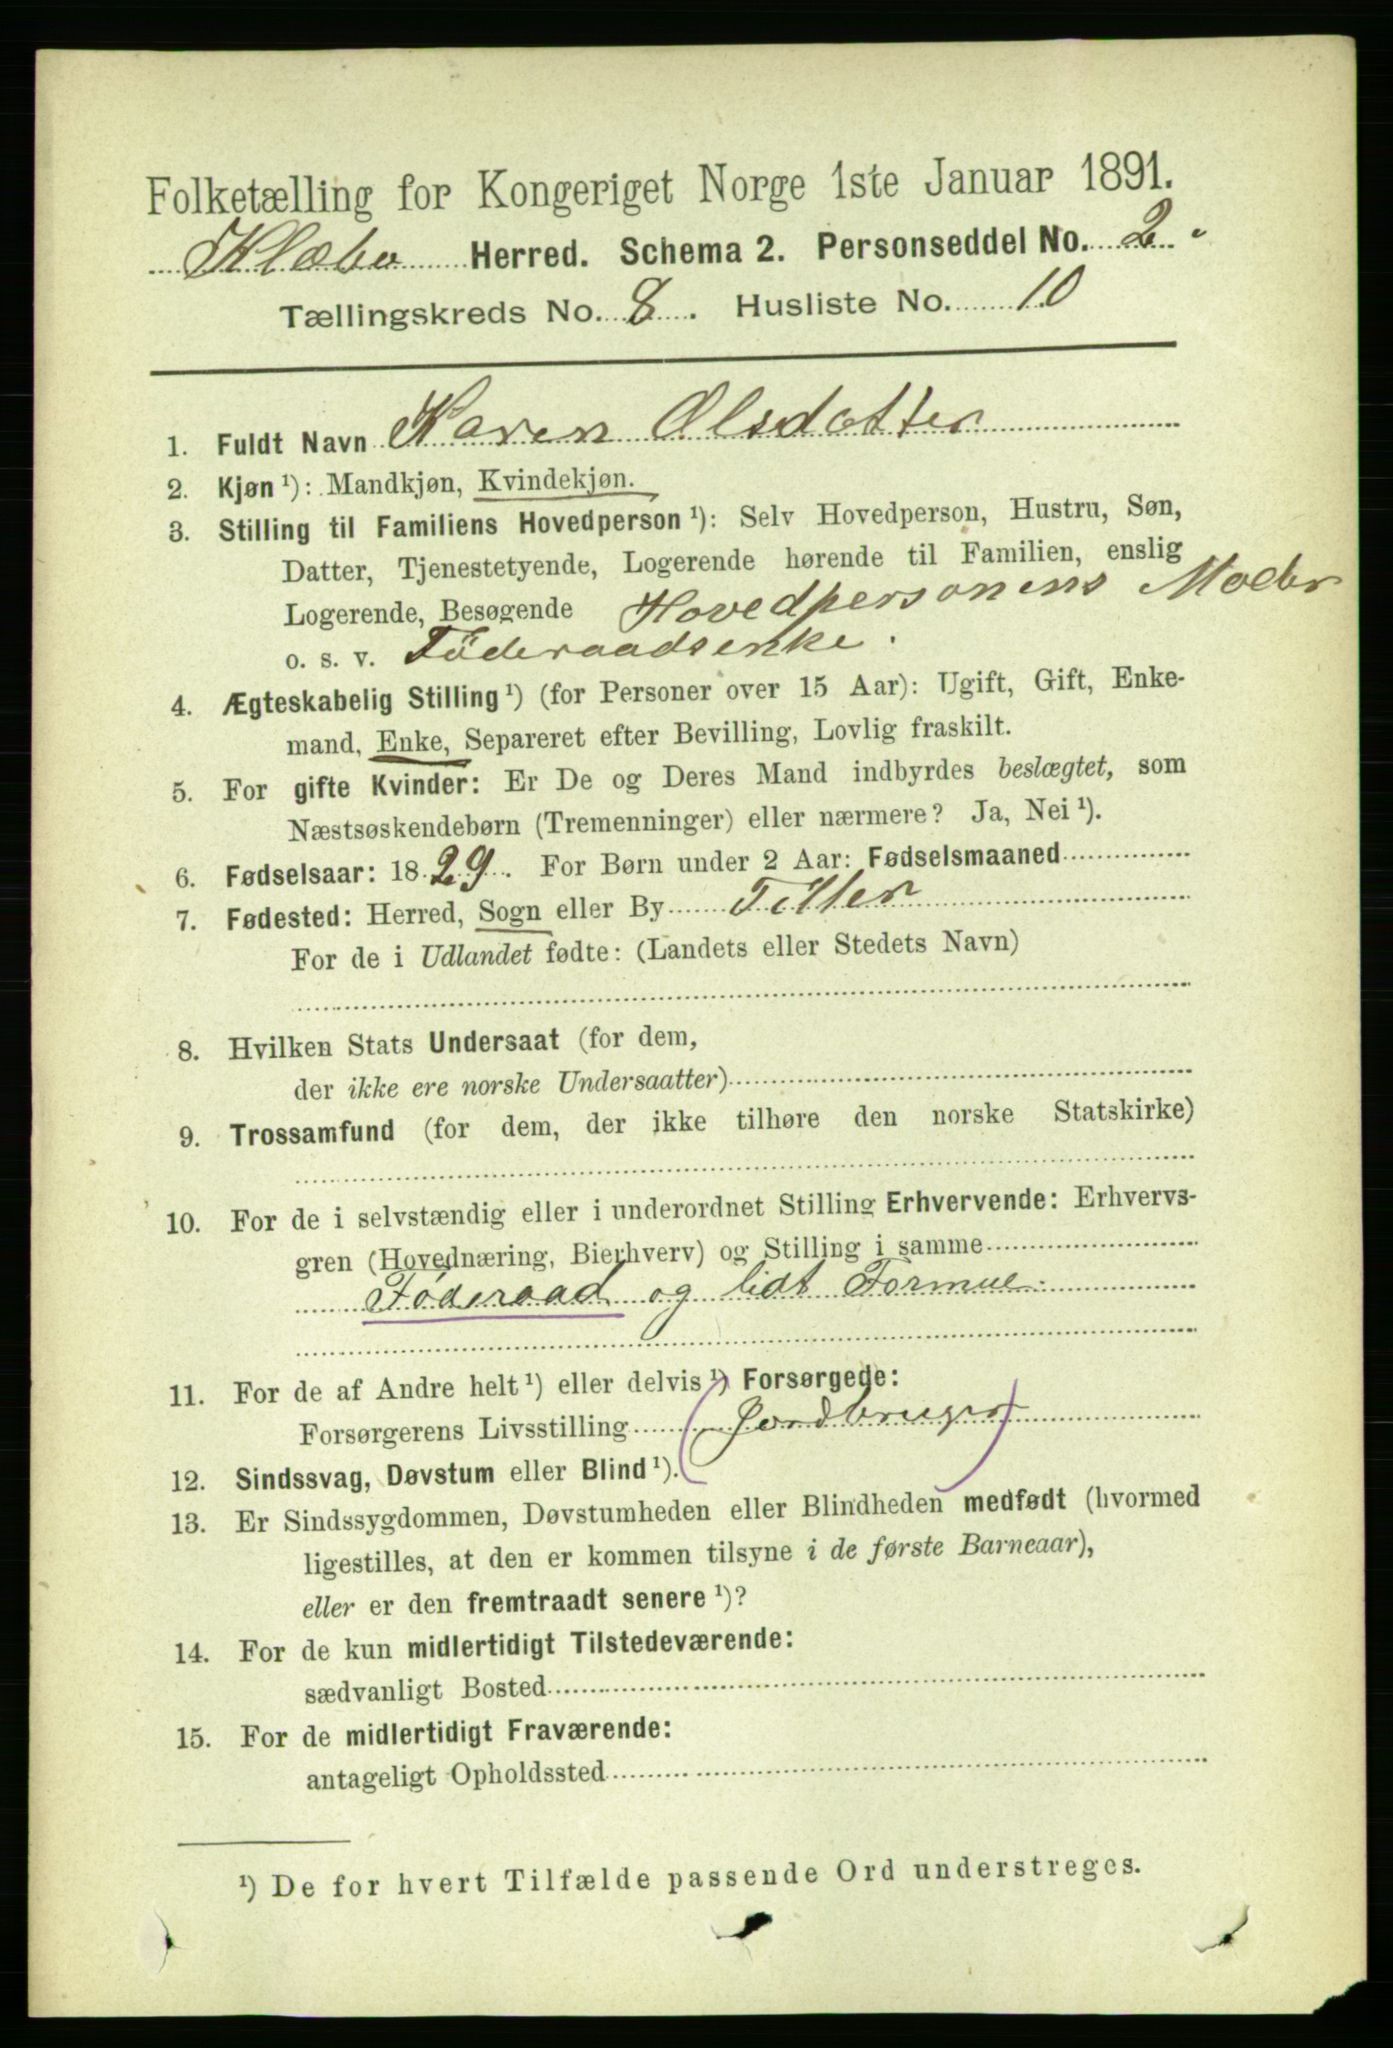 Folketælling for Kongeriget Norge 1ste Januar 1891.
Klæbu Herred. Schema 2. Personseddel No. 2.
Tællingskreds No. 8. Husliste No. 10
1. Fuldt Navn Karen Olsdatter
2. Kjøn ¹): Mandkjøn, Kvindekjøn.
3. Stilling til Familiens Hovedperson ¹): Selv Hovedperson, Hustru, Søn,
Datter, Tjenestetyende, Logerende hørende til Familien, enslig
Logerende, Besøgende Hovedpersonens Moder
o. s. v. Føderaadsenke.
4. Ægteskabelig Stilling ¹) (for Personer over 15 Aar): Ugift, Gift, Enke-
mand, Enke, Separeret efter Bevilling, Lovlig fraskilt.
5. For gifte Kvinder: Er De og Deres Mand indbyrdes beslægtet, som
Næstsøskendebørn (Tremenninger) eller nærmere? Ja, Nei ¹).
6. Fødselsaar: 1829. For Børn under 2 Aar: Fødselsmaaned
7. Fødested: Herred, Sogn eller By Tiller
For de i Udlandet fødte: (Landets eller Stedets Navn)
8. Hvilken Stats Undersaat (for dem,
der ikke ere norske Undersaatter)
9. Trossamfund (for dem, der ikke tilhøre den norske Statskirke)
10. For de i selvstændig eller i underordnet Stilling Erhvervende: Erhvervs-
gren (Hovednæring, Bierhverv) og Stilling i samme
Føderaad og lidt Formue.
11. For de af Andre helt ¹) eller delvis ¹) Forsørgede:
Forsørgerens Livsstilling (Jordbruger)
12. Sindssvag, Døvstum eller Blind ¹).
13. Er Sindssygdommen, Døvstumheden eller Blindheden medfødt (hvormed
ligestilles, at den er kommen tilsyne i de første Barneaar),
eller er den fremtraadt senere ¹)?
14. For de kun midlertidigt Tilstedeværende:
sædvanligt Bosted
15. For de midlertidigt Fraværende:
antageligt Opholdssted
¹) De for hvert Tilfælde passende Ord understreges.